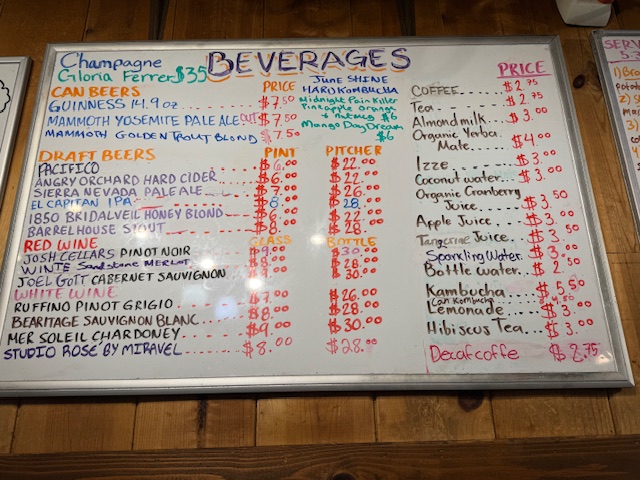 Champagne
Gloria Ferrer $35
BEVERAGES
CAN BEERS PRICE
GUINNESS 14.9 oz $7.50
MAMMOTH YOSEMITE PALE ALE OUT $7.50
MAMMOTH GOLDEN TROUT BLOND $7.50
JUNE SHINE
HARD KOMBUCHA
Midnight Pain Killer
Pineapple orange
+ nutmeg $6
Mango Day Dream
$6
DRAFT BEERS PINT PITCHER
PACIFICO $6.00 $22.00
ANGRY ORCHARD HARD CIDER $6.00 $22.00
SIERRA NEVADA PALE ALE $7.00 $26.00
EL CAPITAN IPA $8.00 $28.00
1850 BRIDALVEIL HONEY BLOND $6.00 $22.00
BARREL HOUSE STOUT $8.00 $28.00
RED WINE GLASS BOTTLE
JOSH CELLARS PINOT NOIR $9.00 $30.00
WINTE Sandstone MERLOT $8.00 $28.00
JOEL GOTT CABERNET SAUVIGNON $9.00 $30.00
WHITE WINE
RUFFINO PINOT GRIGIO $7.00 $26.00
BEARITAGE SAUVIGNON BLANC $8.00 $28.00
MER SOLEIL CHARDONEY $9.00 $30.00
STUDIO ROSE BY MIRAVEL $8.00 $28.00
PRICE
COFFEE $2.75
Tea $2.75
Almond milk $3.00
Organic Yerba
Mate $4.00
Izze $3.00
Coconut water $3.00
Organic Cranberry
Juice $3.50
Apple Juice $3.00
Tangerine Juice $3.00
Sparkling Water $3.00
Bottle water $2.50
Kambucha $5.50
Can Kombucha $4.50
Lemonade $3.00
Hibiscus Tea $3.00
Decaf coffe $2.75